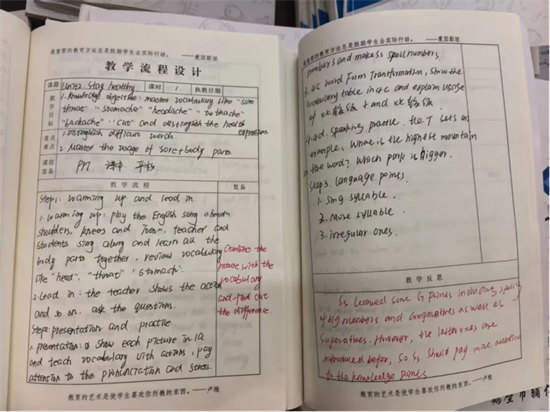 最重要的教育方法总是鼓励学生去实际行动。 ——爱因斯坦
教学流程设计
课题 Unit2 Stay healthy 课时 1 执教日期
教学目标
1. Knowledge objective: master vocabulary like "sore
throat" "stomache" "headache" "toothache"
"backache" "cut" and distinguish the health
expressions
重点难点
1. Distinguish difficult words
2. Master the usage of sore + body parts
课前准备 PPT 课本
教学流程
复备
Step1: Warming up and lead in.
1. Warming up: play the English song
shoulders, knees and toes. teacher and
students sing along and learn all the
body parts together, review vocabulary
like "head". "throat" "stomach".
2. Lead in: the teacher shows the action
and so on. ask the questions.
Step2 presentation and practice
1. presentation: show each picture in 1a
and teach vocabulary with actions, pay
attention to the pronunciation and stress.
Combine the
picture with the
vocabulary
and find out
the difference
教育的艺术是使学生喜欢你所教的东西。 ——卢梭
最重要的教育方法总是鼓励学生去实际行动。 ——爱因斯坦
numbers and makes spell numbers.
3. 2c Word Form Transformation, show the
vocabulary table in and explain usage
of 比较级 and 最高级
4. 2d. Speaking practice. the T sets an
example, What is the highest mountain
in the word? Which park is bigger.
Step3. Language points.
1. Sing syllable.
2. More syllable
3. irregular ones.
教学反思
Ss learned some G points including spelling
of big numbers and comparatives as well as
superlatives. However, the last ones are
introduced before, so Ss should pay more attention
to the knowledge points
教育的艺术是使学生喜欢你所教的东西。 ——卢梭